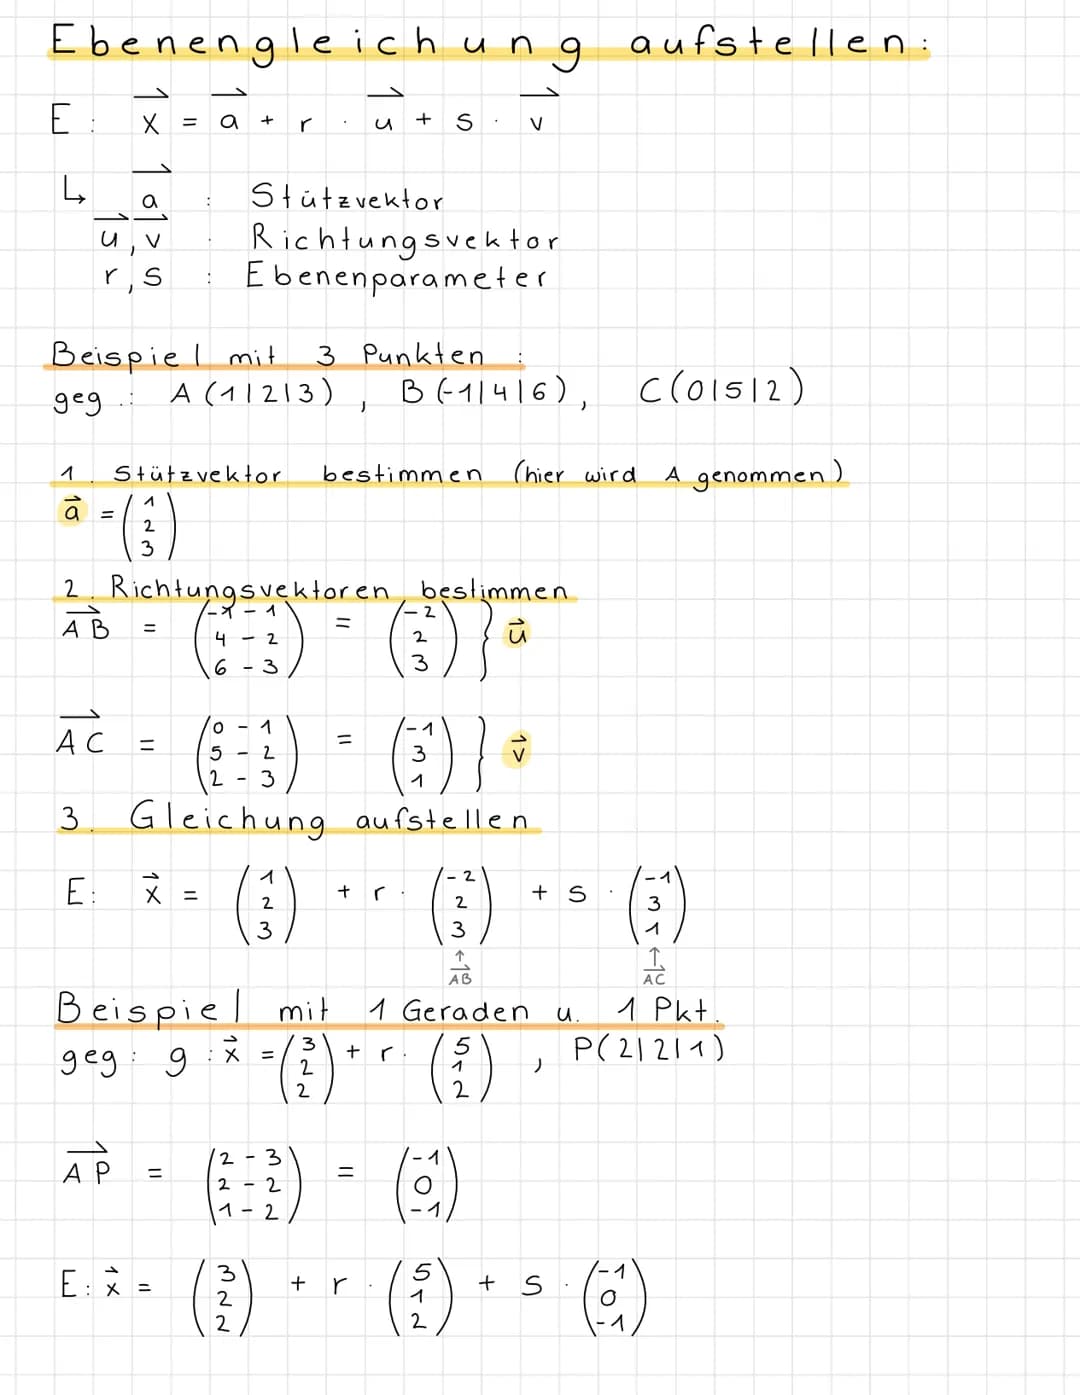 Ebenengleichung aufstellen:
E: x⃗ = a⃗ + r · u⃗ + s · v⃗
↳ a⃗ : Stützvektor
u⃗, v⃗ : Richtungsvektor
r, s : Ebenenparameter
Beispiel mit 3 Punkten :
geg.: A(1|2|3), B(-1|4|6), C(0|5|2)
1. Stützvektor bestimmen (hier wird A genommen)
a⃗ = (1 2 3)
2. Richtungsvektoren bestimmen
AB⃗ = (-1-1 4-2 6-3) = (-2 2 3) } u⃗
AC⃗ = (0-1 5-2 2-3) = (-1 3 1) } v⃗
3. Gleichung aufstellen
E: x⃗ = (1 2 3) + r · (-2 2 3) + s · (-1 3 1)
↑ ↑
AB⃗ AC⃗
Beispiel mit 1 Geraden u. 1 Pkt.
geg: g: x⃗ = (3 2 2) + r · (5 1 2), P(2|2|1)
AP⃗ = (2-3 2-2 1-2) = (-1 0 -1)
E: x⃗ = (3 2 2) + r · (5 1 2) + s · (-1 0 -1)